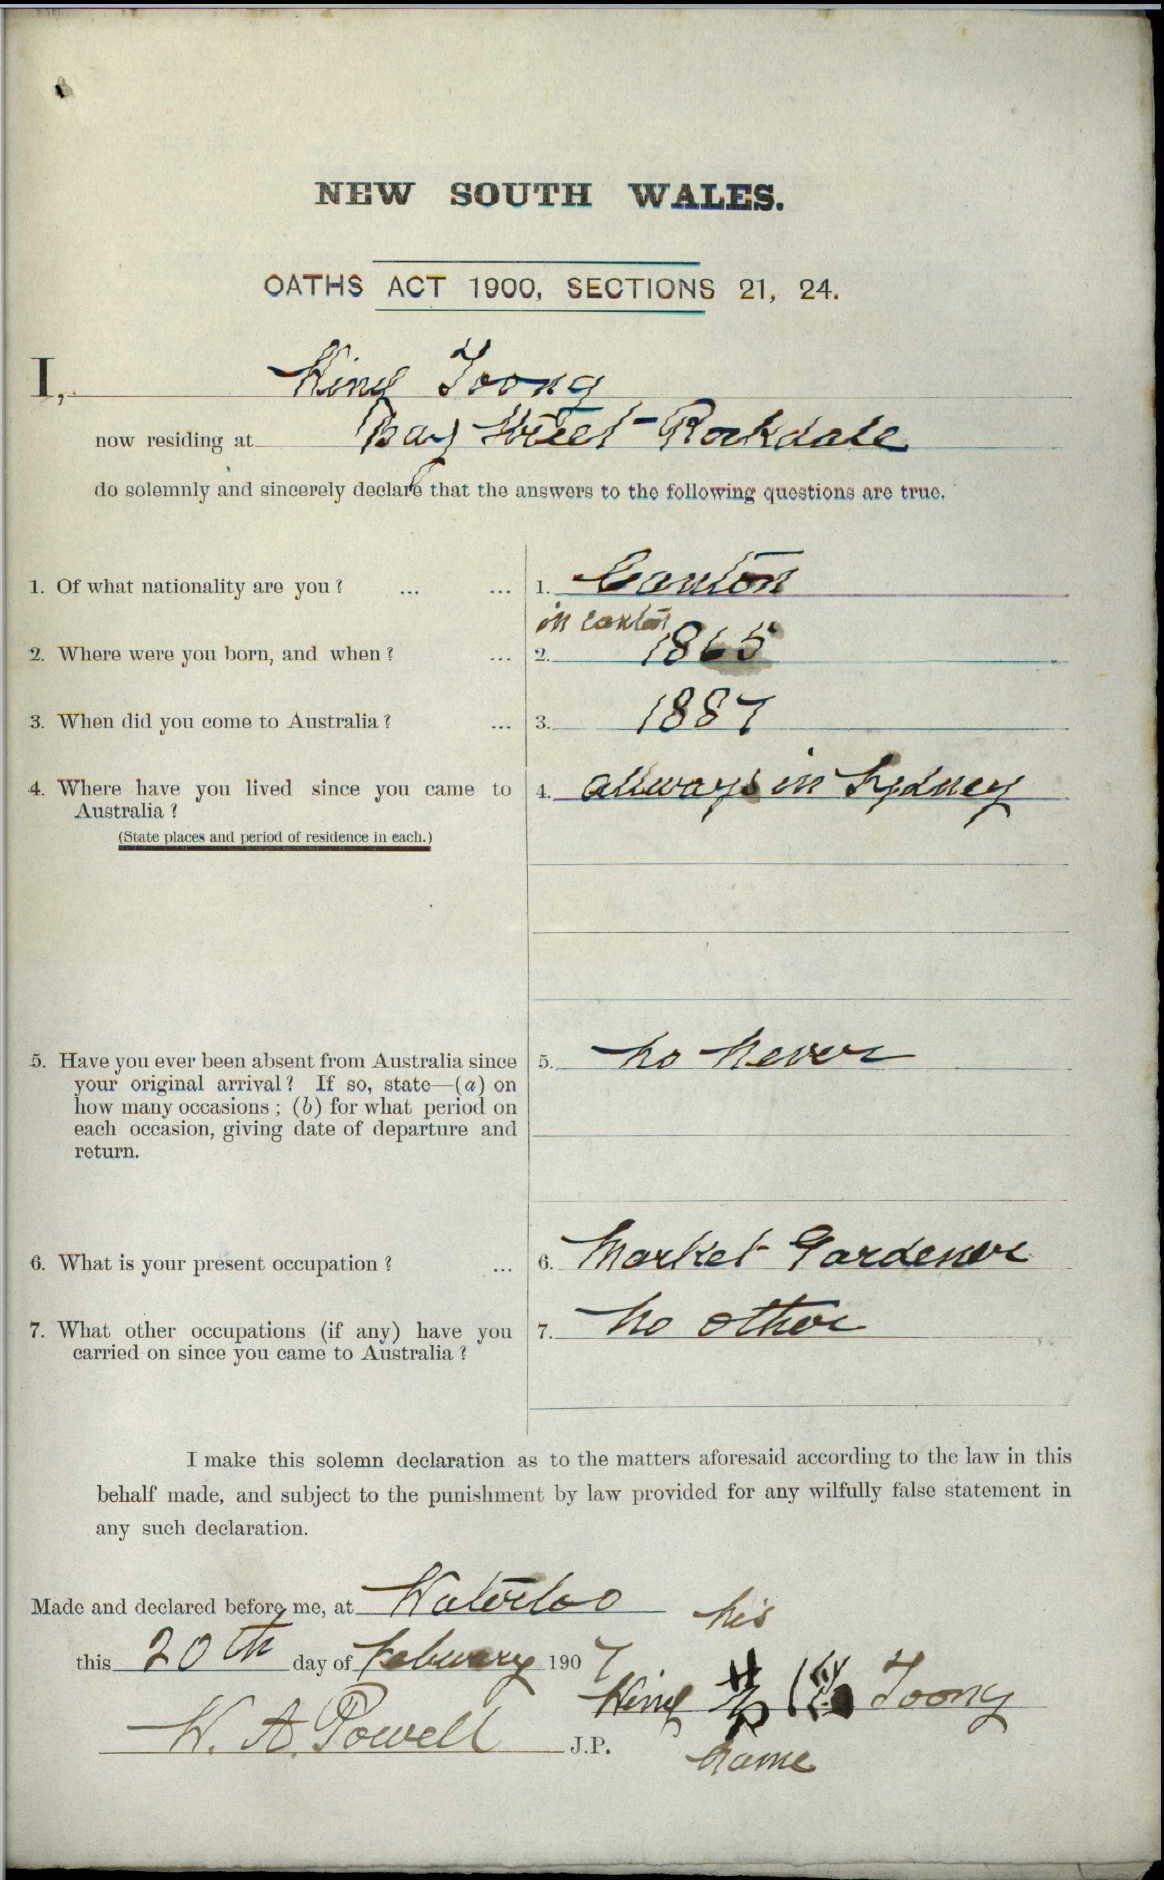 NEW SOUTH WALES.
OATHS ACT 1900, SECTIONS 21, 24.
I, King Toong
now residing at Bay Street Rockdale
do solemnly and sincerely declare that the answers to the following questions are true.
1. Of what nationality are you? ... ... 1. Canton
in canton
2. Where were you born, and when? ... 2. 1865
3. When did you come to Australia? ... 3. 1887
4. Where have you lived since you came to 4. allways in Sydney
Australia?
(State places and period of residence in each.)
5. Have you ever been absent from Australia since 5. no never
your original arrival? If so, state—(a) on
how many occasions; (b) for what period on
each occasion, giving date of departure and
return.
6. What is your present occupation? ... 6. Market Gardener
7. What other occupations (if any) have you 7. no other
carried on since you came to Australia?
I make this solemn declaration as to the matters aforesaid according to the law in this
behalf made, and subject to the punishment by law provided for any wilfully false statement in
any such declaration.
Made and declared before me, at Waterloo his
this 20th day of Febuary 1907
King Toong
W. A. Powell J.P.
name